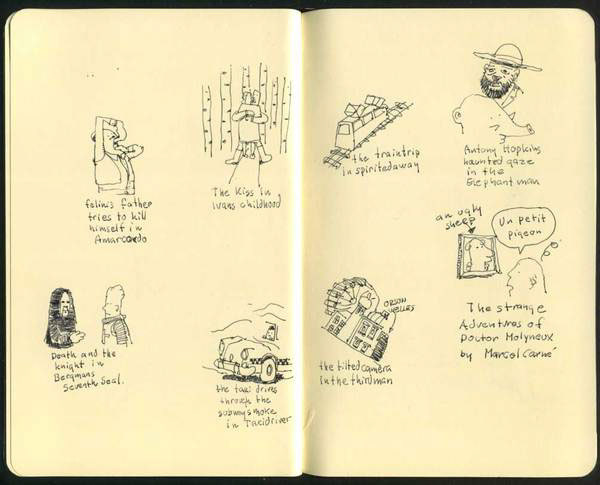 felinis father
tries to kill
himself in
Amarcordo
The Kiss in
Ivans childhood
Death and the
knight in
Bergmans
Seventh Seal.
the taxi drives
through the
subway smoke
in Taxidriver
the traintrip
in spirited away
Antony Hopkins
haunted gaze
in the
Elephant man
an ugly
sheep
Un petit
pigeon
The strange
Adventures of
Doctor Molyneux
by Marcel Carné
ORSON
WELLES
the tilted camera
in the third man